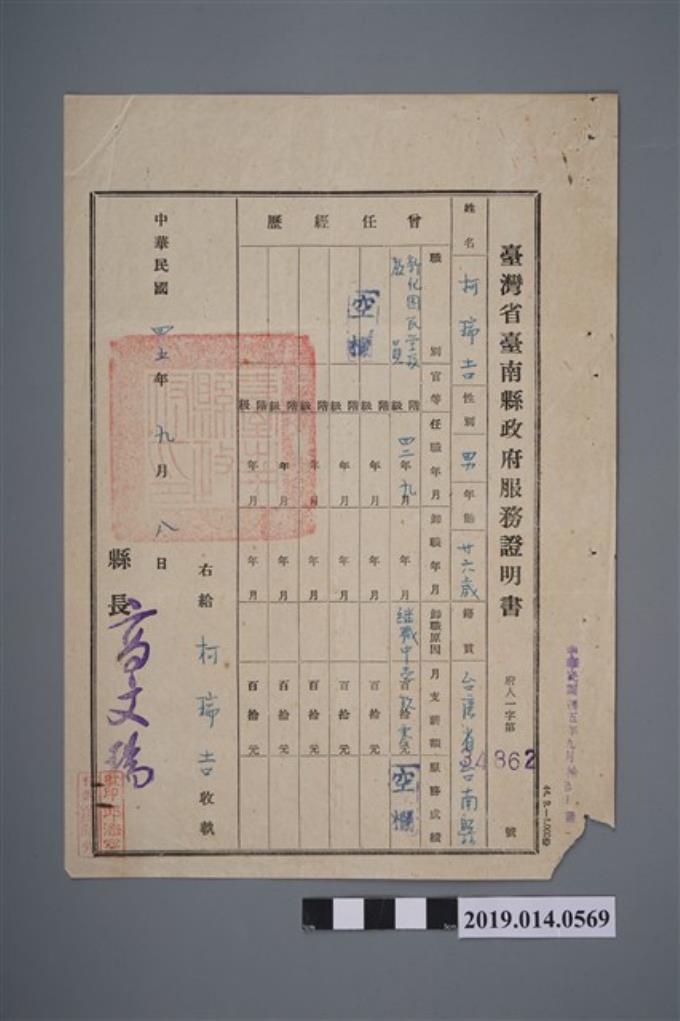 臺灣省臺南縣政府服務證明書
府人一字第34862號
姓名 柯瑞吉 性別 男 年齡 廿六歲 籍貫 台灣省台南縣
曾任經歷
職別 官等 任職年月 卸職年月 卸職原因 月支薪額 服務成績
新化國民學校 員 階級 四二年九月 年月 繼職中 百拾元 空欄
空欄
階級 年月 年月 百拾元
階級 年月 年月 百拾元
階級 年月 年月 百拾元
階級 年月 年月 百拾元
階級 年月 年月 百拾元
右給 柯瑞吉 收執
縣長 高文瑞
中華民國四五年九月八日
2019.014.0569